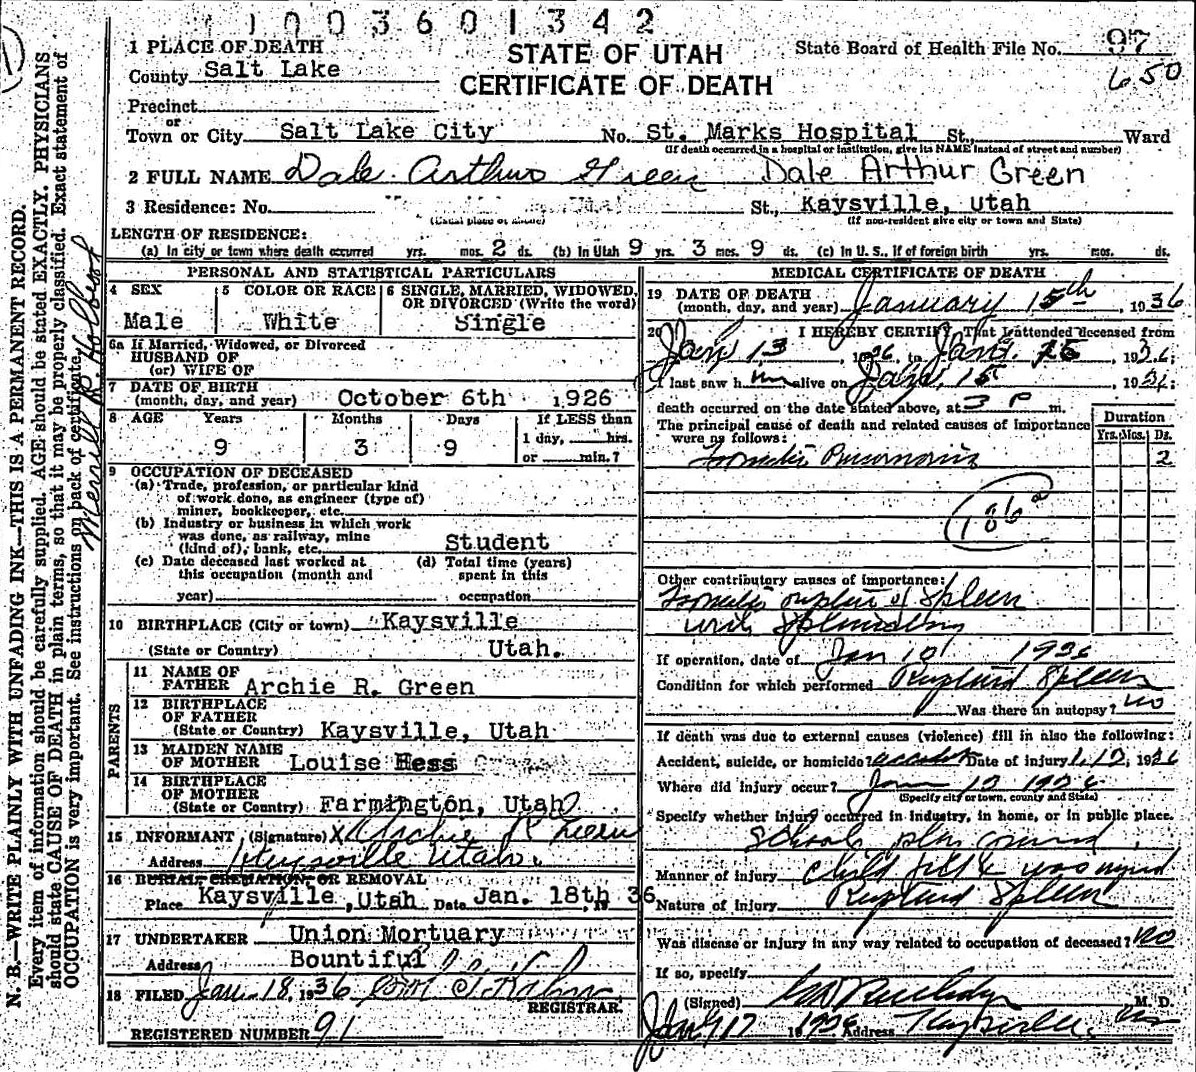 1003601342
STATE OF UTAH
CERTIFICATE OF DEATH
State Board of Health File No. 97
650
1 PLACE OF DEATH
County Salt Lake
Precinct
or
Town or City Salt Lake City No. St. Marks Hospital St., Ward
(If death occurred in a hospital or institution, give its NAME instead of street and number)
2 FULL NAME Dale Arthur Green Dale Arthur Green
3 Residence: No. St., Kaysville, Utah
(Usual place of abode) (If non-resident give city or town and State)
LENGTH OF RESIDENCE:
(a) In city or town where death occurred yrs. mos. 2 ds. (b) In Utah 9 yrs. 3 mos. 9 ds. (c) In U. S., if of foreign birth yrs. mos. ds.
PERSONAL AND STATISTICAL PARTICULARS
4 SEX Male
5 COLOR OR RACE White
6 SINGLE, MARRIED, WIDOWED, OR DIVORCED (Write the word) Single
6a If Married, Widowed, or Divorced
HUSBAND OF
(or) WIFE OF
7 DATE OF BIRTH
(month, day, and year) October 6th 1926
8 AGE Years Months Days If LESS than
9 3 9 1 day, hrs.
or min.?
9 OCCUPATION OF DECEASED
(a) Trade, profession, or particular kind
of work done, as engineer (type of)
miner, bookkeeper, etc.
(b) Industry or business in which work
was done, as railway, mine
(kind of), bank, etc. Student
(c) Date deceased last worked at
this occupation (month and
year)
(d) Total time (years)
spent in this
occupation
10 BIRTHPLACE (City or town) Kaysville
(State or Country) Utah.
PARENTS
11 NAME OF
FATHER Archie R. Green
12 BIRTHPLACE
OF FATHER
(State or Country) Kaysville, Utah
13 MAIDEN NAME
OF MOTHER Louise Hess
14 BIRTHPLACE
OF MOTHER
(State or Country) Farmington, Utah
15 INFORMANT (Signature) X Archie R Green
Address Kaysville Utah.
16 BURIAL, CREMATION, OR REMOVAL
Place Kaysville, Utah Date Jan. 18th, 19 36
17 UNDERTAKER Union Mortuary
Address Bountiful
18 FILED Jan. 18, 1936
REGISTRAR.
REGISTERED NUMBER 91
MEDICAL CERTIFICATE OF DEATH
19 DATE OF DEATH
(month, day, and year) January 15th, 1936
20 I HEREBY CERTIFY, That I attended deceased from
Jan 13 1936, to Jan. 15, 1936.
I last saw h im alive on Jan. 15, 1936;
death occurred on the date stated above, at 3 P m.
The principal cause of death and related causes of importance
were as follows:
Duration
Yrs. Mos. Ds.
Pneumonia 2
186a
Other contributory causes of importance:
rupture of Spleen
with
If operation, date of Jan 10 1936
Condition for which performed Ruptured Spleen
Was there an autopsy? no
If death was due to external causes (violence) fill in also the following:
Accident, suicide, or homicide? accident Date of injury 1936
Where did injury occur? Jan 1936
(Specify city or town, county and State)
Specify whether injury occurred in industry, in home, or in public place.
School play ground
Manner of injury Child fell & was injured
Nature of injury Ruptured Spleen
Was disease or injury in any way related to occupation of deceased? no
If so, specify
(Signed) M. D.
Jan 17 1936 Address Kaysville
N. B.—WRITE PLAINLY WITH UNFADING INK—THIS IS A PERMANENT RECORD.
Every item of information should be carefully supplied. AGE should be stated EXACTLY. PHYSICIANS
should state CAUSE OF DEATH in plain terms, so that it may be properly classified. Exact statement of
OCCUPATION is very important. See instructions on back of certificate.
Merrill R.